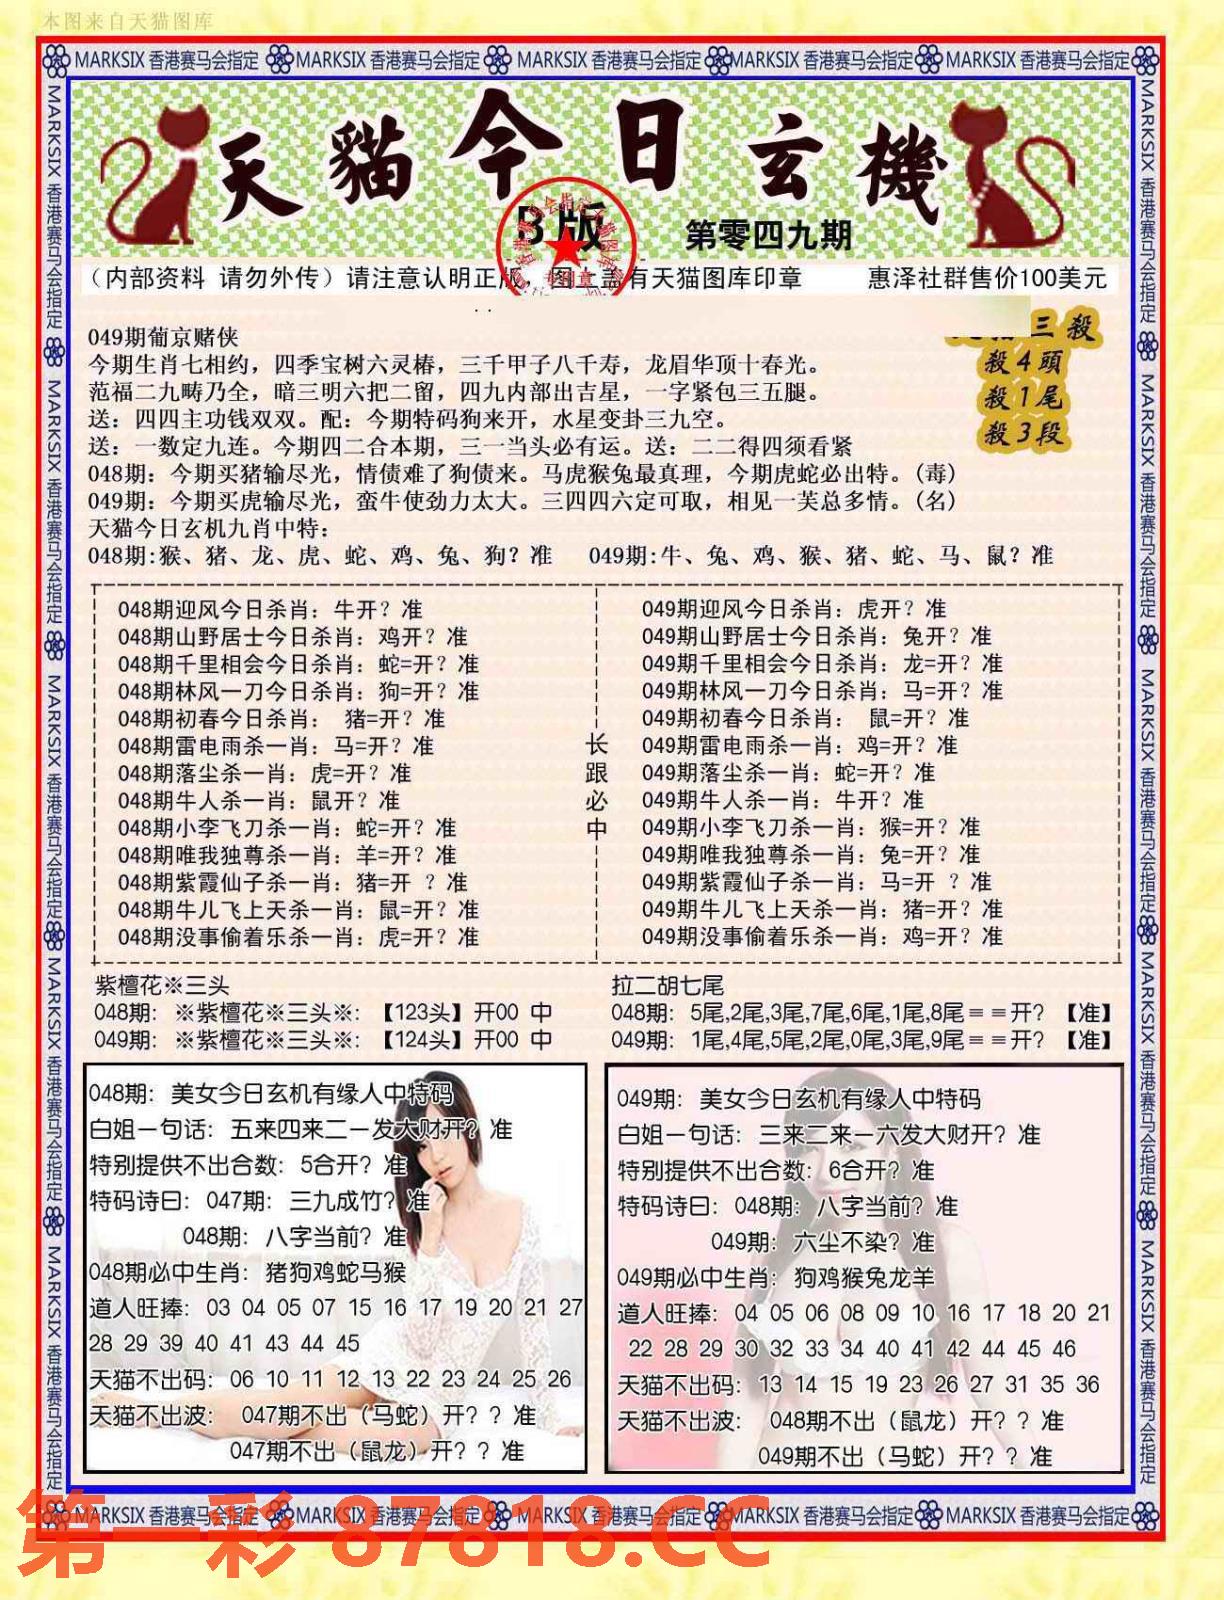 本图来自天猫图库
MARKSIX 香港赛马会指定 MARKSIX 香港赛马会指定 MARKSIX 香港赛马会指定 MARKSIX 香港赛马会指定 MARKSIX 香港赛马会指定
天貓今日玄機
B版
第零四九期
（内部资料 请勿外传）请注意认明正版 图上盖有天猫图库印章 惠泽社群售价100美元
三殺
殺4頭
殺1尾
殺3段
049期葡京赌侠
今期生肖七相约，四季宝树六灵椿，三千甲子八千寿，龙眉华顶十春光。
范福二九畴乃全，暗三明六把二留，四九内部出吉星，一字紧包三五腿。
送：四四主功钱双双。配：今期特码狗来开，水星变卦三九空。
送：一数定九连。今期四二合本期，三一当头必有运。送：二二得四须看紧
048期：今期买猪输尽光，情债难了狗债来。马虎猴兔最真理，今期虎蛇必出特。(毒)
049期：今期买虎输尽光，蛮牛使劲力太大。三四四六定可取，相见一芙总多情。(名)
天猫今日玄机九肖中特：
048期:猴、猪、龙、虎、蛇、鸡、兔、狗？准 049期:牛、兔、鸡、猴、猪、蛇、马、鼠？准
048期迎风今日杀肖：牛开？准
048期山野居士今日杀肖：鸡开？准
048期千里相会今日杀肖：蛇=开？准
048期林风一刀今日杀肖：狗=开？准
048期初春今日杀肖： 猪=开？准
048期雷电雨杀一肖：马=开？准
048期落尘杀一肖：虎=开？准
048期牛人杀一肖：鼠开？准
048期小李飞刀杀一肖：蛇=开？准
048期唯我独尊杀一肖：羊=开？准
048期紫霞仙子杀一肖：猪=开 ？准
048期牛儿飞上天杀一肖：鼠=开？准
048期没事偷着乐杀一肖：虎=开？准
长跟必中
049期迎风今日杀肖：虎开？准
049期山野居士今日杀肖：兔开？准
049期千里相会今日杀肖：龙=开？准
049期林风一刀今日杀肖：马=开？准
049期初春今日杀肖： 鼠=开？准
049期雷电雨杀一肖：鸡=开？准
049期落尘杀一肖：蛇=开？准
049期牛人杀一肖：牛开？准
049期小李飞刀杀一肖：猴=开？准
049期唯我独尊杀一肖：兔=开？准
049期紫霞仙子杀一肖：马=开 ？准
049期牛儿飞上天杀一肖：猪=开？准
049期没事偷着乐杀一肖：鸡=开？准
紫檀花※三头
048期：※紫檀花※三头※：【123头】开00 中
049期：※紫檀花※三头※：【124头】开00 中
拉二胡七尾
048期：5尾,2尾,3尾,7尾,6尾,1尾,8尾＝＝开？【准】
049期：1尾,4尾,5尾,2尾,0尾,3尾,9尾＝＝开？【准】
048期：美女今日玄机有缘人中特码
白姐一句话：五来四来二一发大财开？准
特别提供不出合数：5合开？准
特码诗曰：047期：三九成竹？准
048期：八字当前？准
048期必中生肖：猪狗鸡蛇马猴
道人旺捧：03 04 05 07 15 16 17 19 20 21 27
28 29 39 40 41 43 44 45
天猫不出码：06 10 11 12 13 22 23 24 25 26
天猫不出波： 047期不出（马蛇）开？？准
047期不出（鼠龙）开？？准
049期：美女今日玄机有缘人中特码
白姐一句话：三来二来一六发大财开？准
特别提供不出合数：6合开？准
特码诗曰：048期：八字当前？准
049期：六尘不染？准
049期必中生肖：狗鸡猴兔龙羊
道人旺捧：04 05 06 08 09 10 16 17 18 20 21
22 28 29 30 32 33 34 40 41 42 44 45 46
天猫不出码：13 14 15 19 23 26 27 31 35 36
天猫不出波： 048期不出（鼠龙）开？？准
049期不出（马蛇）开？？准
MARKSIX 香港赛马会指定 MARKSIX 香港赛马会指定 MARKSIX 香港赛马会指定 MARKSIX 香港赛马会指定 MARKSIX 香港赛马会指定
第一彩 87818.CC